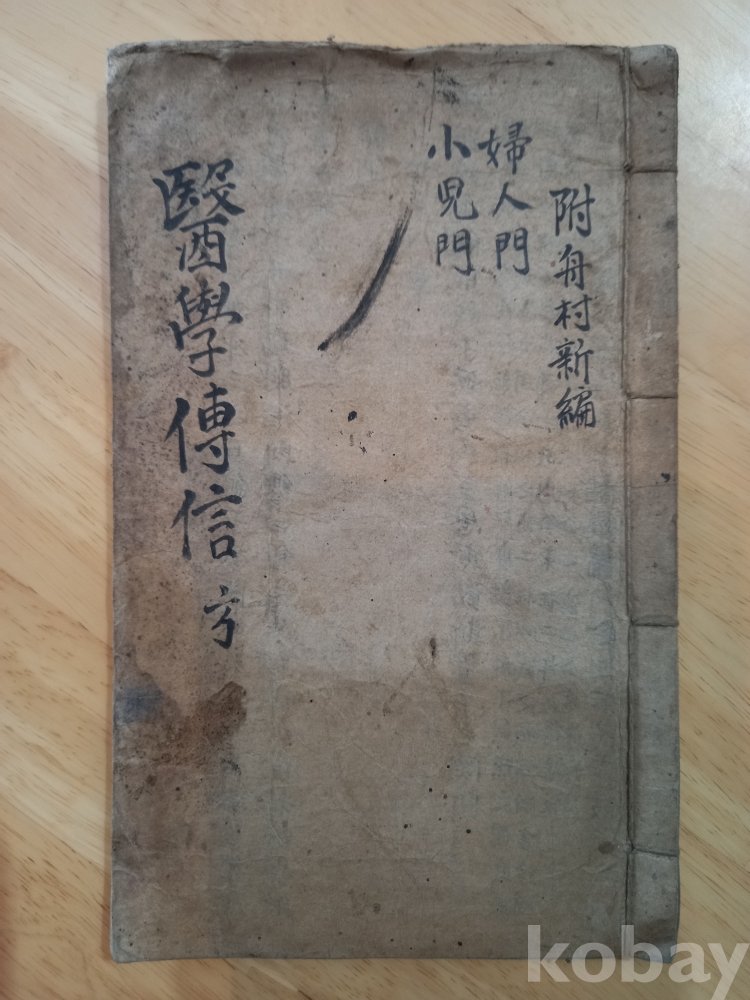 附舟村新編
婦人門
小兒門
醫學傳信方
kobay